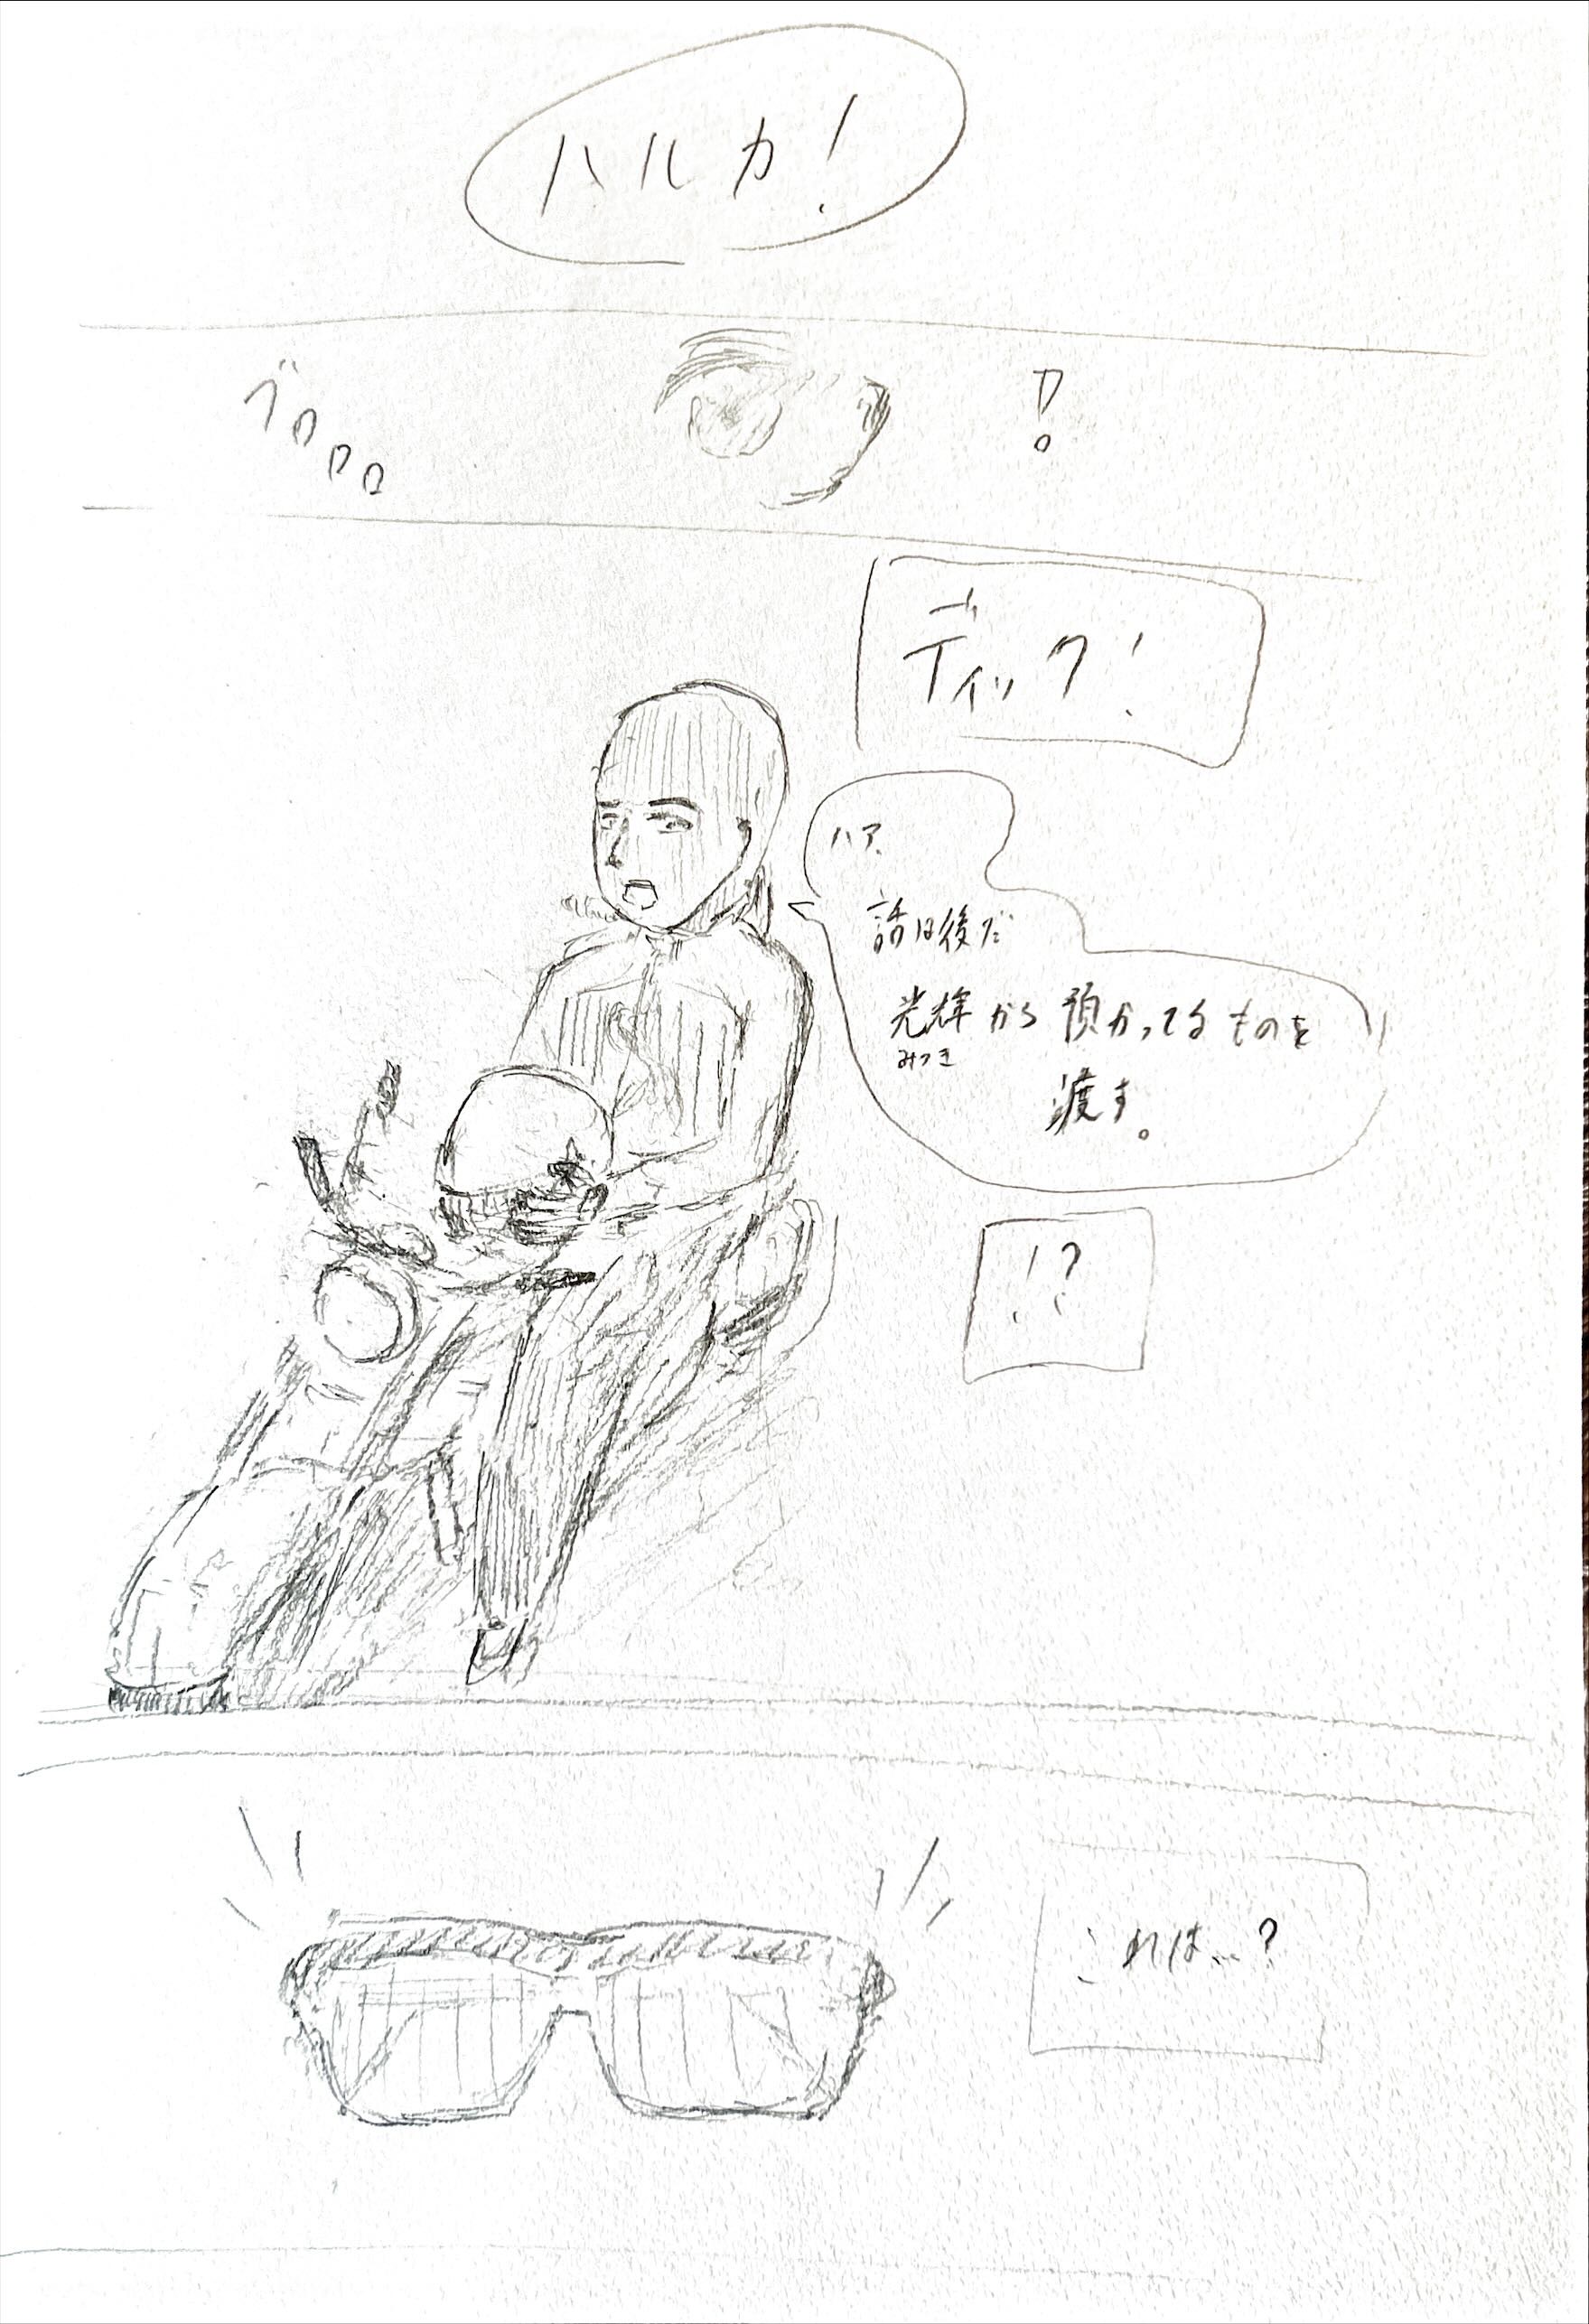 ハルカ!
!
ブロロロ
ディック!
ハア、
話は後だ
光輝から預かってるものを
みつき
渡す。
!?
これは…?